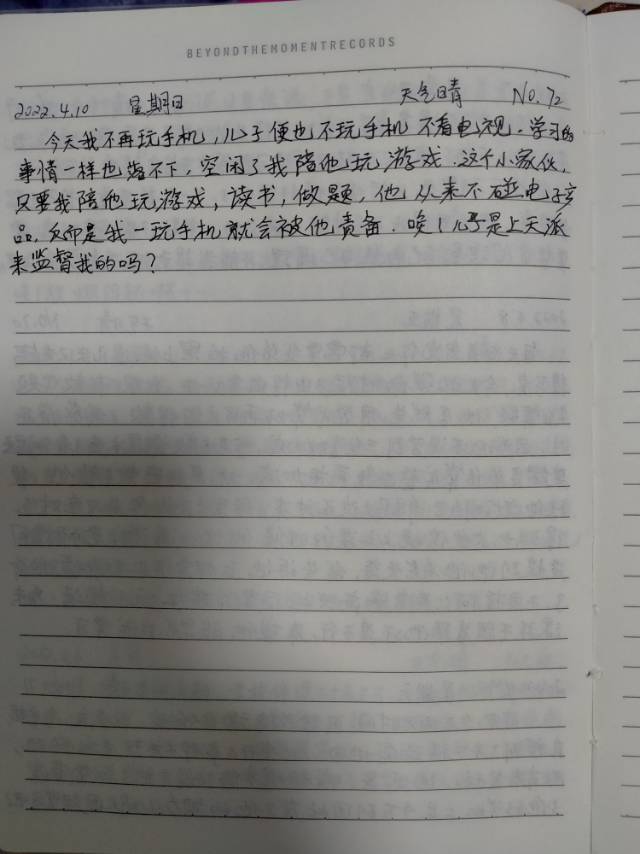 BEYONDTHEMOMENTRECORDS
2022.4.10 星期日 天气晴 No.72
今天我不再玩手机,儿子便也不玩手机 不看电视。学习的
事情一样也落不下,空闲了我陪他玩游戏.这个小家伙,
只要我陪他玩游戏,读书,做题,他从来不碰电子产
品,反而是我一玩手机就会被他责备.唉!儿子是上天派
来监督我的吗?